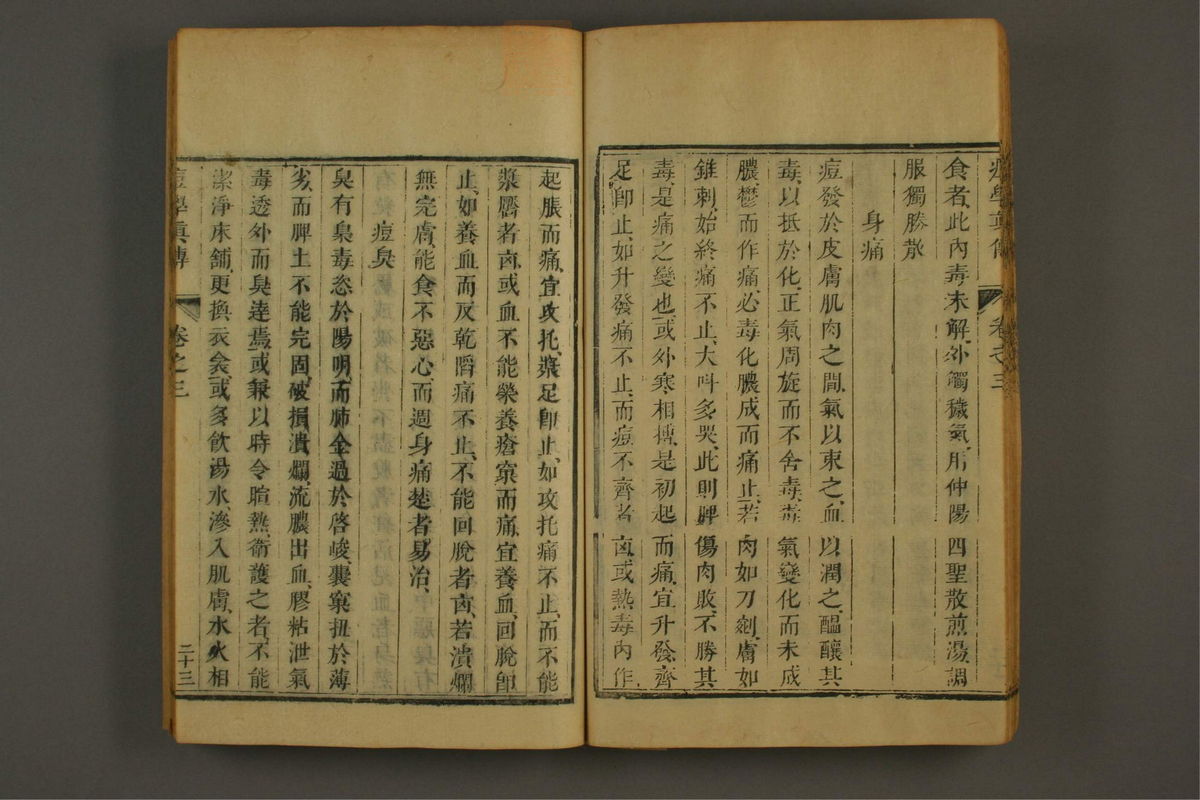 痘學真傳 卷之三
食者、此內毒未解、外觸穢氣、用仲陽四聖散煎湯調
服獨勝散
身痛
痘發於皮膚肌肉之間、氣以束之、血以潤之、醞釀其
毒、以抵於化、正氣周旋而不舍毒、毒氣變化而未成
膿、鬱而作痛、必毒化膿成而痛止、若肉如刀剜、膚如
錐刺、始終痛不止、大呌多哭、此則脾傷肉敗、不勝其
毒、是痛之變也、或外寒相搏、是初起而痛、宜升發、齊
足卽止、如升發痛不止、而痘不齊者凶、或熱毒內作、
起脹而痛、宜攻托、漿足卽止、如攻托痛不止、而不能
漿膺者凶、或血不能榮養瘡窠而痛、宜養血、回脫卽
止、如養血而反乾䐃痛不止、不能回脫者凶、若潰爛
無完膚、能食不惡心而週身痛楚者易治、
痘臭
臭有臭毒恣於陽明、而肺金過於啓峻、囊窠扭於薄
劣、而脾土不能完固、破損潰爛、流膿出血、膠粘泄氣、
毒透外而臭達焉、或兼以時令暄熱、衛護之者、不能
潔淨床鋪、更換衣衾、或多飮湯水、滲入肌膚、水火相
痘學真傳 卷之三 二十三